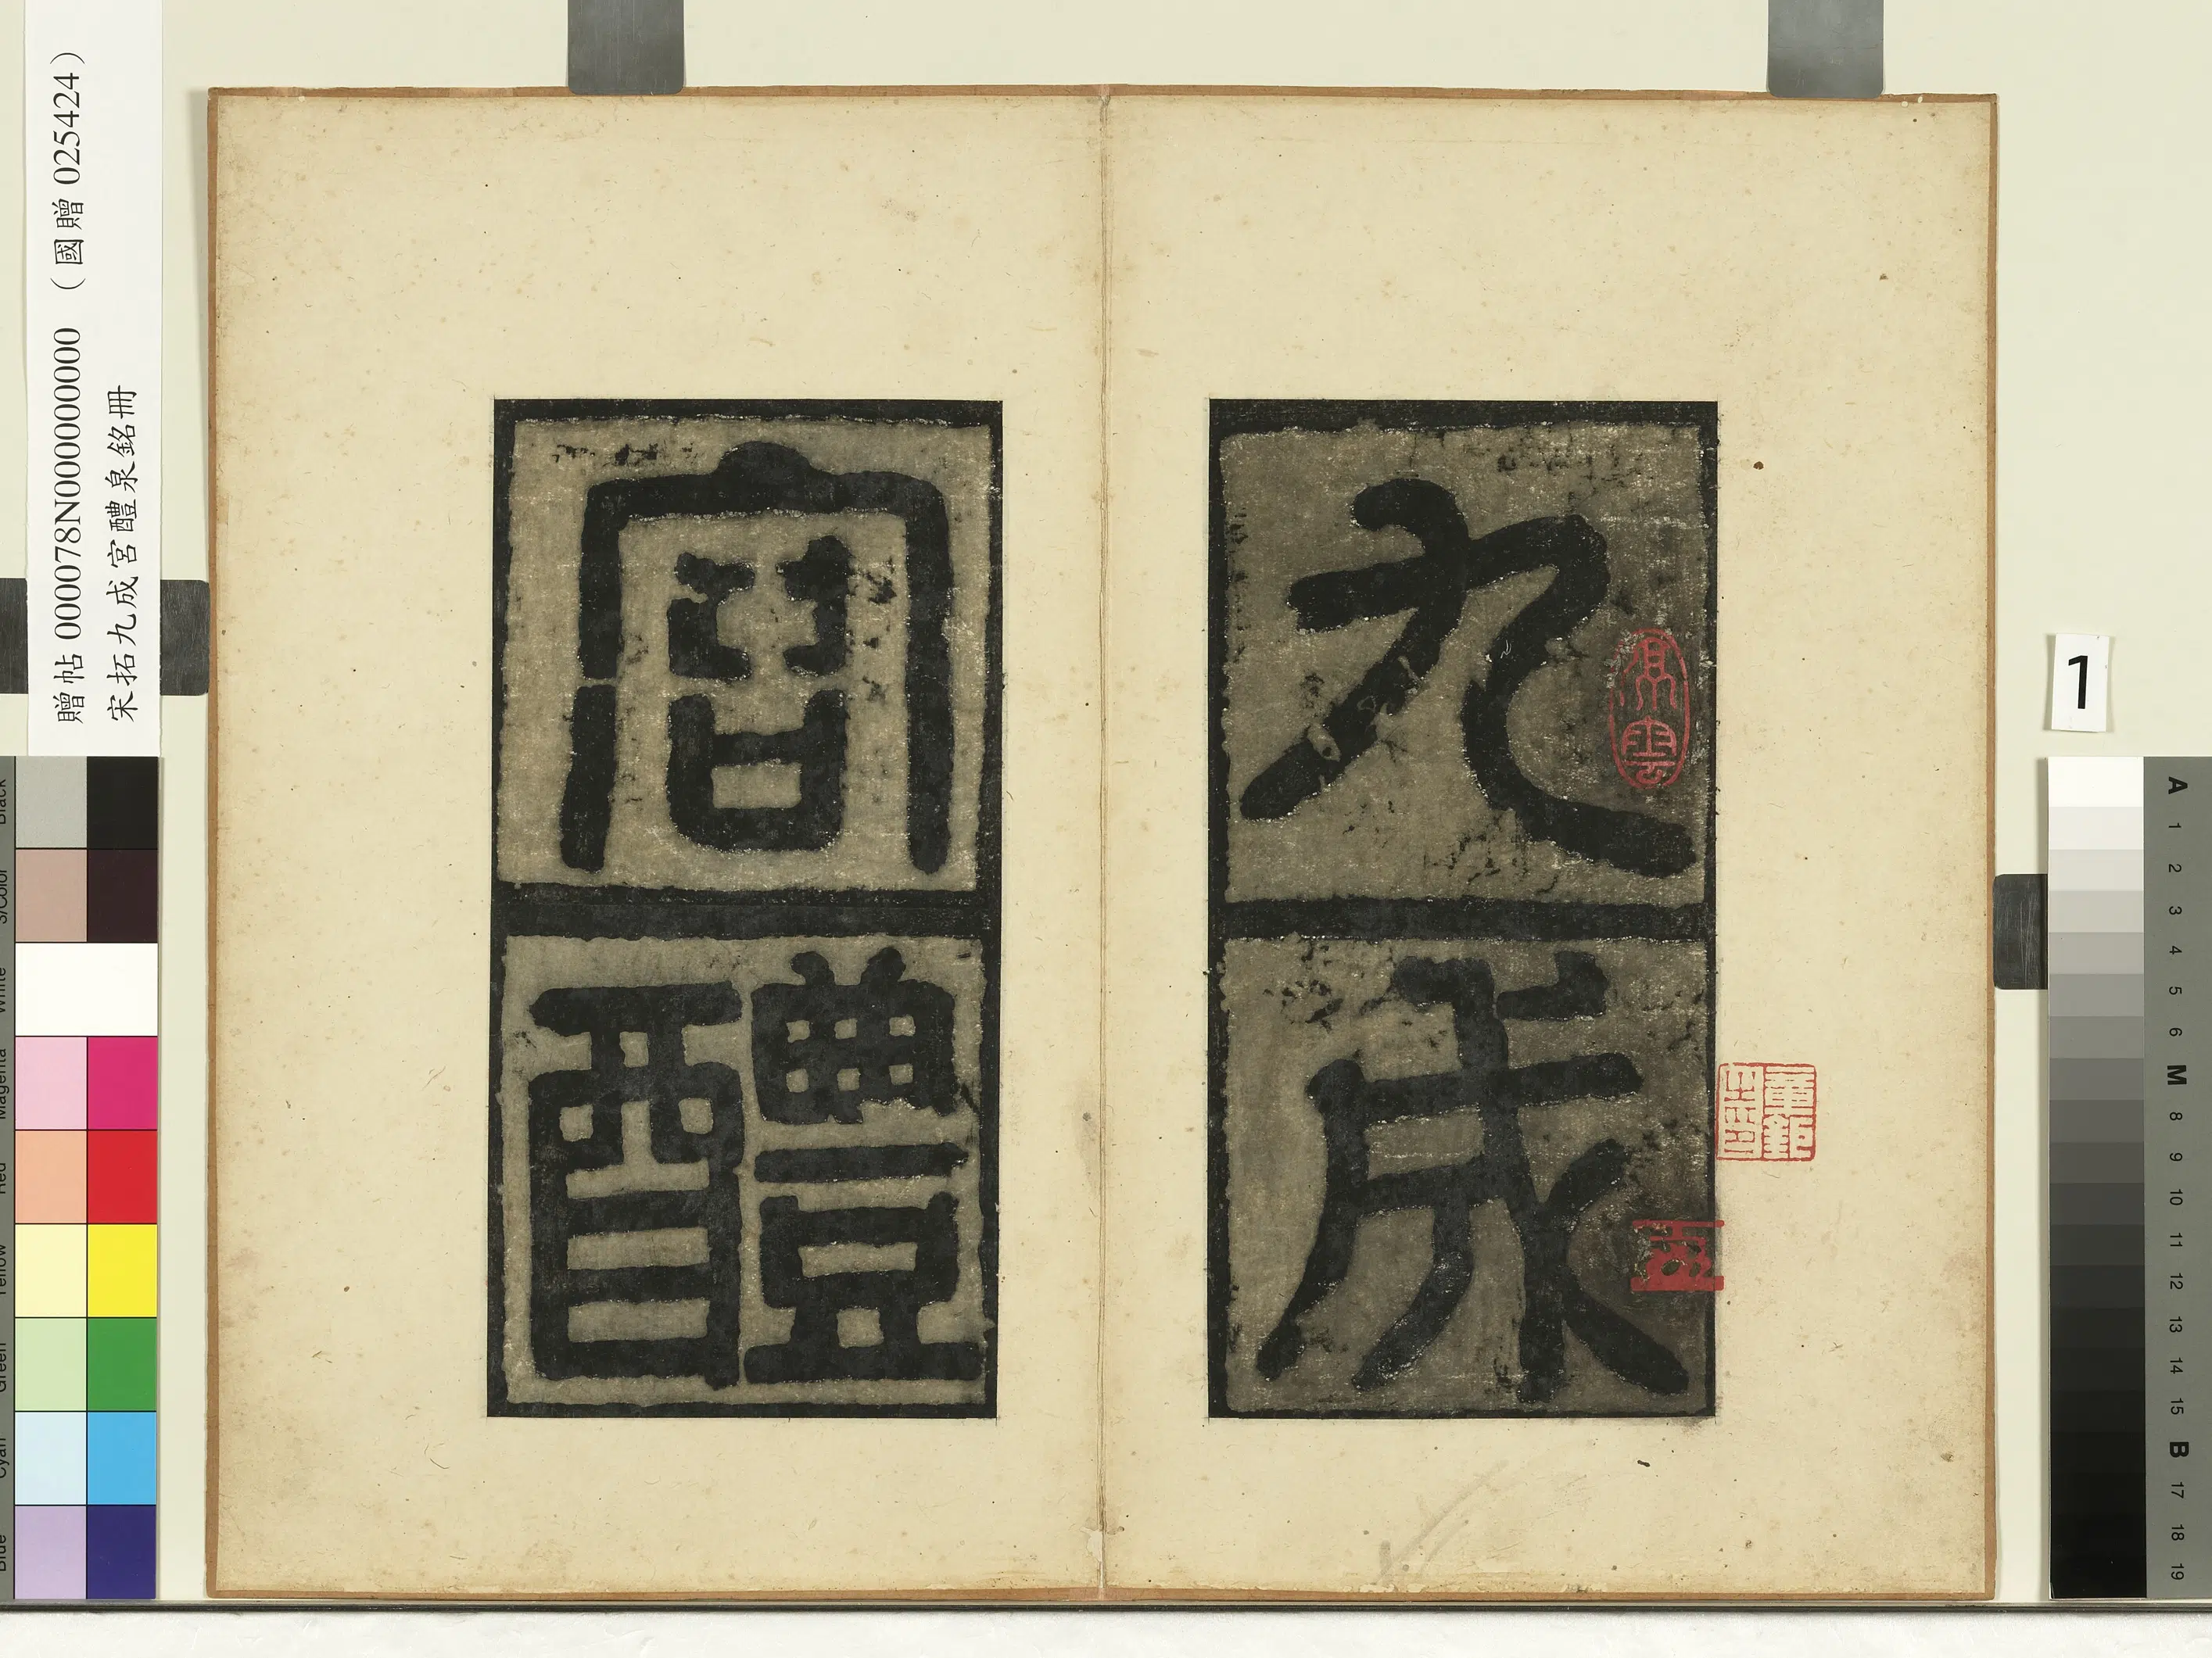 贈帖 000078N000000000 （國贈 025424）
宋拓九成宮醴泉銘冊
九成
宮醴
1
Black
3/Color
White
Magenta
Red
Yellow
Green
Cyan
Blue
A
1
2
3
4
5
6
M
8
9
10
11
12
13
14
15
B
17
18
19